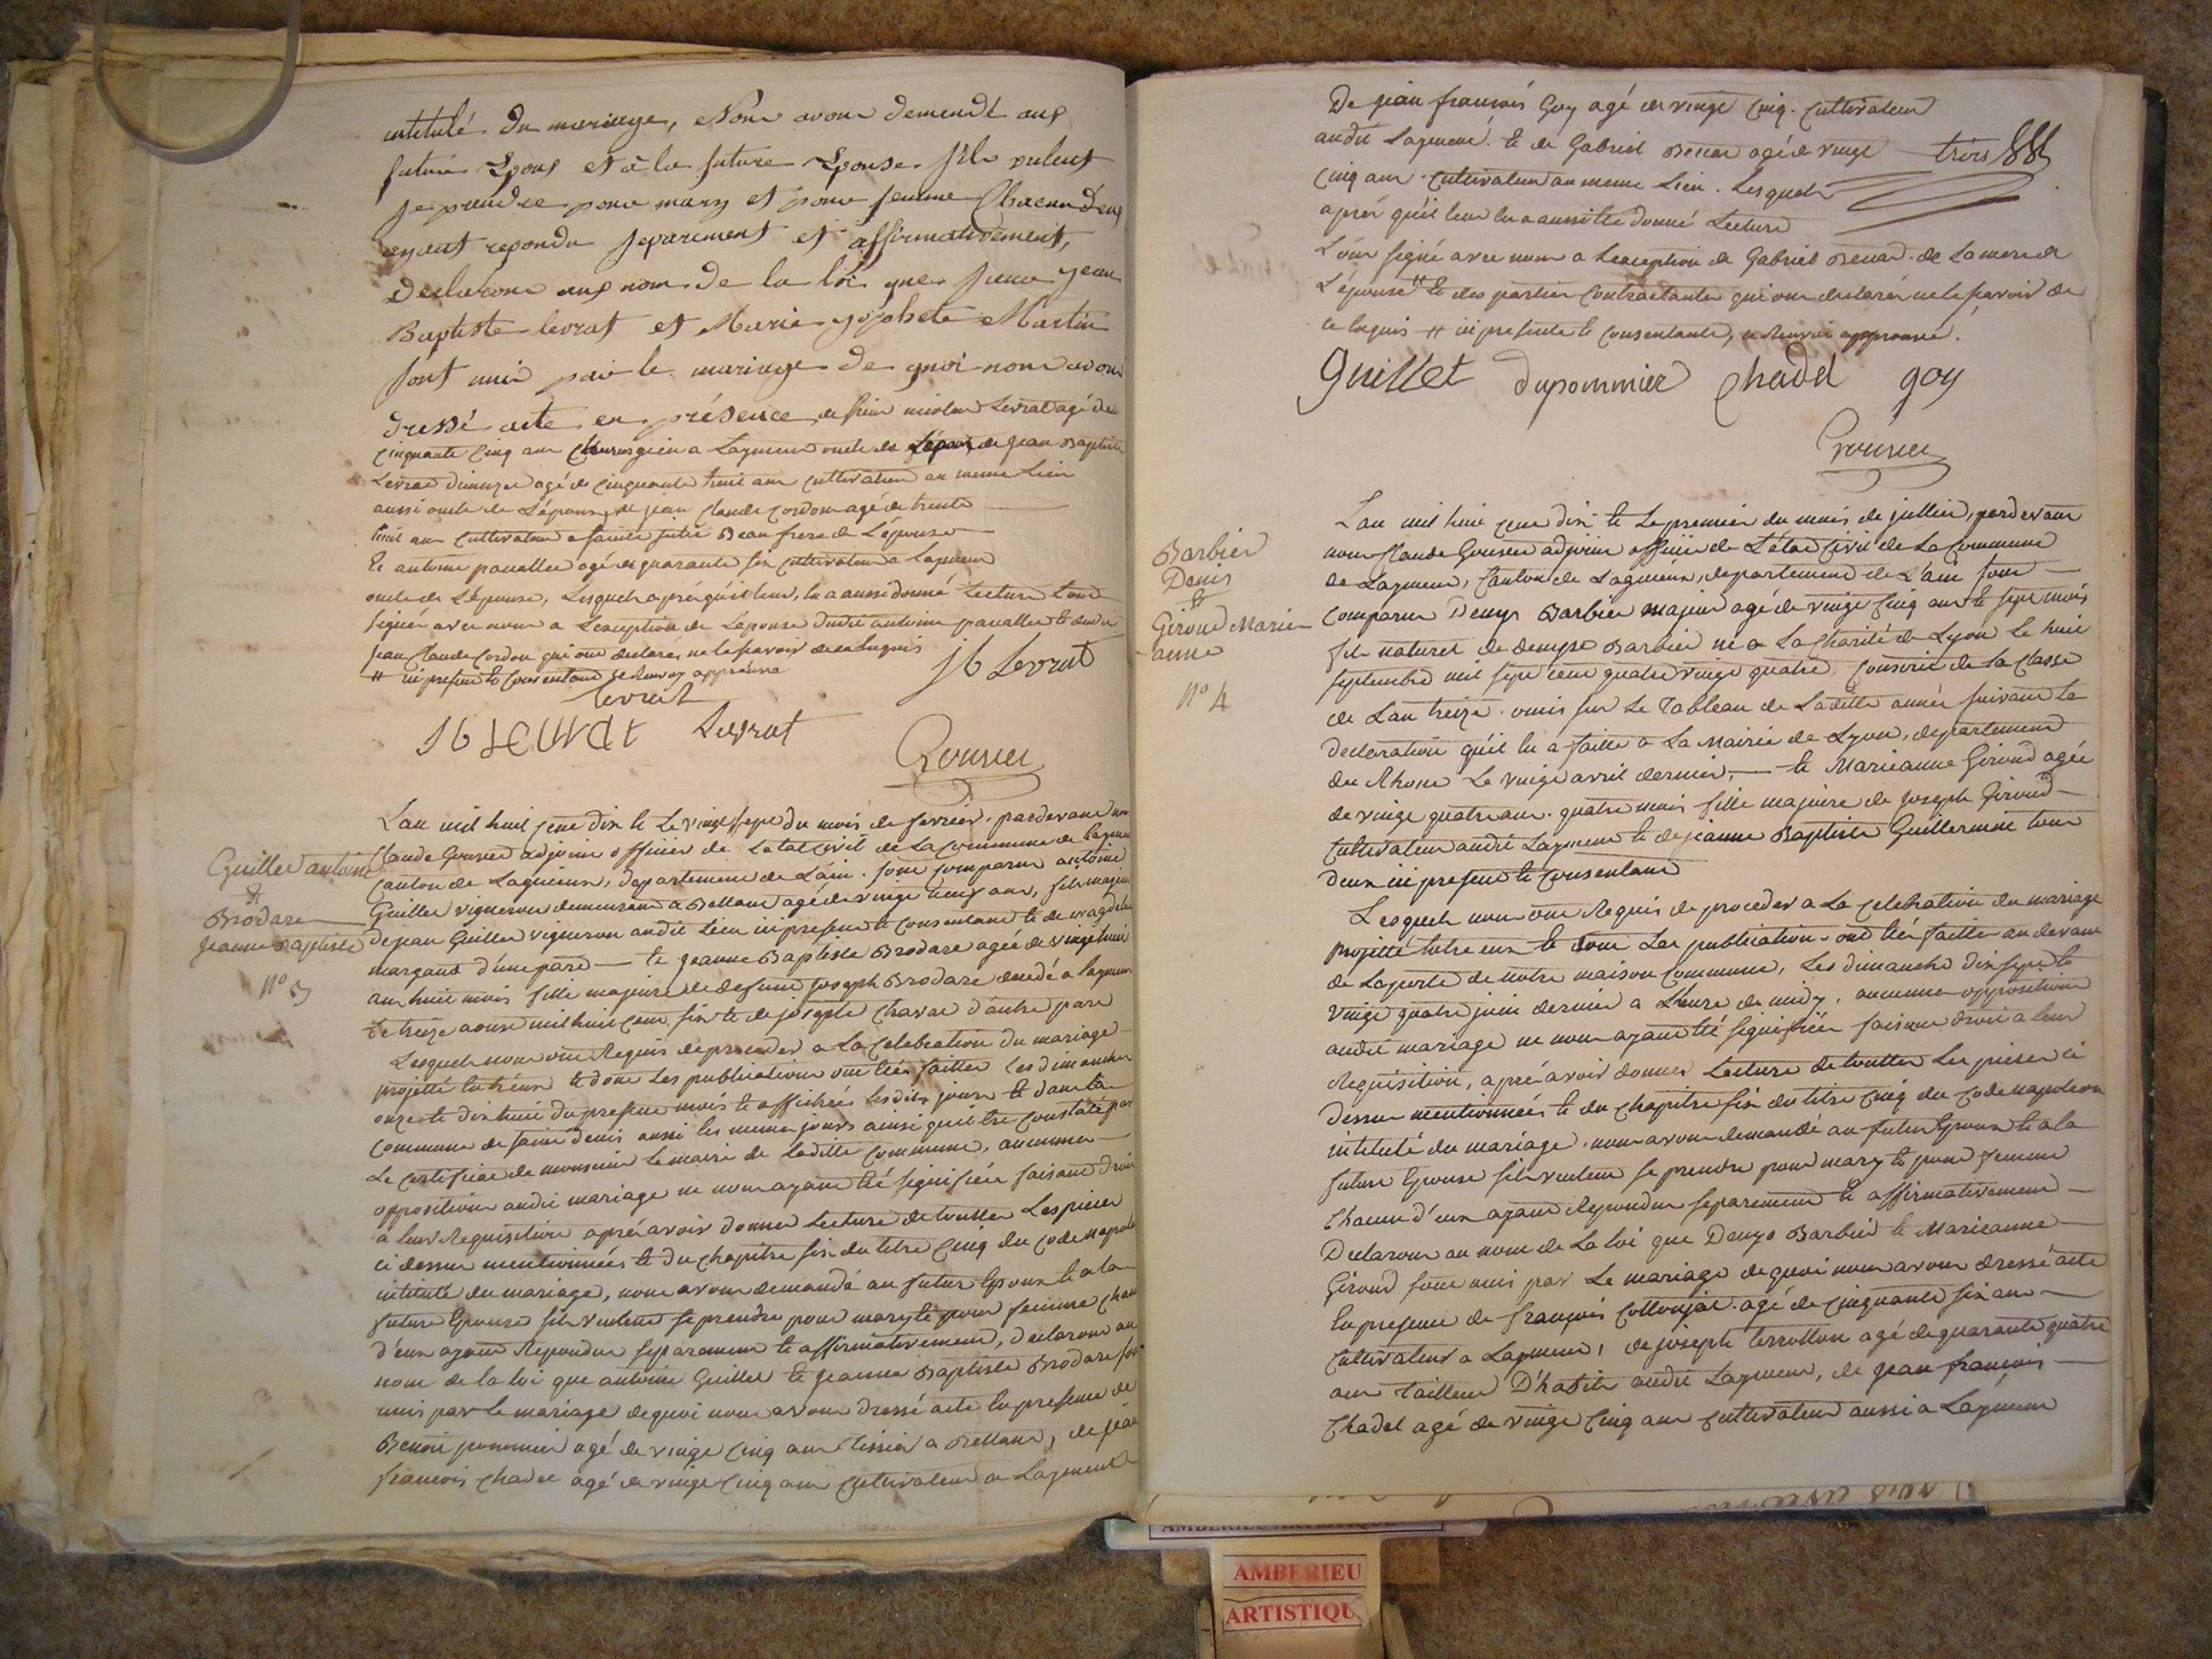 intitulé du mariage, Nous avons demendé aux
future Epoux et à la future Epouse s'ils veulent
se prendre pour mary et pour femme Chacun d'eux
ayant repondu separement et affirmativement,
declarons aux nom de la loi que sieur jean
Baptiste levrat et Marie josephete Martin
sont unis par le mariage de quoi nous avons
dressé acte en présence de sieur nicolas Levrat agé de
cinquante cinq ans Chirurgien a Lagnieu oncle de L'époux, de jean Baptiste
Levrat agé de cinquante huit ans cultivateur au meme Lieu
aussi oncle de L'époux, de jean claude cordon agé de trente
huit ans cultivateur a sainte julie Beau frere de L'épouse
et antoine pavallet agé de quarante six cultivateur a Lagnieu
oncle de L'épouse, Lesquels aprés qu'il leur, en a aussi donné Lecture L'ont
signés avec nous a L'exception de L'épouse dudit antoine pavallet et dudit
jean Claude Cordon qui ont declarés ne le savoir de ce enquis
# ici present et consentant ce renvoy approuvé
levrat
J b Levrat
J b LEVRAt Levrat
Grouner
Guillet antoine
&
Brodare
jeanne Baptiste
N° 3
L'an mil huit cent dix et Le vingt sept du mois de fevrier, pardevant nous
Claude Grouner adjoint officier de L'etat civil de La commune de Lagnieu
canton de Lagnieu, departement de L'ain. sont comparus antoine
Guillet vigneron demeurant a Bettant agé de vingt neuf ans, fils majeur
de jean Guillet vigneron audit Lieu ici present et consentant et de magdelaine
margand d'une part — et jeanne Baptiste Brodare agée de vingt huit
ans huit mois fille majeure de defunt joseph Brodare decedé a Lagnieu
Le treize aoust mil huit cent six et de josepte Chavat d'autre part
Lesquels nous ont Requis de proceder a La Celebration du mariage
projetté entr'eux et dont Les publications ont étés faittes les dimanches
onze et dix huit du present mois et affichées lesdits jours et dans la
commune de saint denis aussi les memes jours ainsi qu'il est constaté par
Le certificat de monsieur Le maire de Laditte commune, aucunes
oppositions audit mariage ne nous ayant été signifiées faisant droit
a leur Requisition aprés avoir donner Lecture de touttes Les pieces
ci dessus mentionnées et du chapitre six du titre cinq du code Napoleon
intitulé du mariage, nous avons demandé au futur Epoux et a la
future Epouse s'ils veulent se prendre pour mary et pour femme chacun
d'eux ayant Repondu separement et affirmativement, declarons au
nom de la loi que antoine Guillet et jeanne Baptiste Brodare sont
unis par le mariage de quoi nous avons dressé acte En presence de
Benoit pommier agé de vingt cinq ans Tissier a Bettant, de jean
francois chadel agé de vingt cinq ans cultivateur a Lagnieu
De jean francois Goy agé de vingt cinq. cultivateur
audit Lagnieu. et de Gabriel Benard agé de vingt
cinq ans cultivateur au meme Lieu. Lesquels
aprés qu'il leur en a aussi été donné Lecture
L'ont signé avec nous a L'exception de Gabriel Benard de La mere de
L'épouse # et des parties contractantes qui ont declarés ne le savoir de
ce enquis # ici presente et consentante, ce renvoi approuvé.
guillet dupommier chadel goy
Grouner
Barbier
Denis
&
Giroud Marie
anne
N° 4
L'an mil huit cent dix et Le premier du mois de juillet, pardevant
nous Claude Grouner adjoint officier de L'état Civil de La commune
de Lagnieu, Canton de Lagnieu, departement de L'ain sont
Comparus Denys Barbier majeur agé de vingt cinq ans et sept mois
fils naturel de denyse Barbier né a La Charité de Lyon le huit
septembre mil sept cent quatre vingt quatre, Conscrit de La Classe
de L'an treize. omis sur Le Tableau de Laditte année suivant La
declaration qu'il en a faitte a La Mairie de Lyon, departement
du Rhone Le vingt avril dernier, — et Marieanne Giroud agée
de vingt quatre ans quatre mois fille majeure de joseph Giroud
Cultivateur audit Lagnieu et de jeanne Baptiste Guillermin tous
deux ici present et consentant
Lesquels nous ont Requis de proceder a La Celebration du mariage
projetté entre eux et dont Les publications ont étés faittes au devant
de La porte de notre maison commune, Les dimanche dix sept et
vingt quatre juin dernier a L'heure de midy, aucunes oppositions
audit mariage ne nous ayant été signifiées faisant droit a leur
Requisition, aprés avoir donner Lecture de touttes Les pieces ci
dessus mentionnées et du chapitre six du titre cinq du code napoleon
intitulé du mariage, nous avons demandé au futur Epoux et a la
future Epouse s'ils veulent se prendre pour mary et pour femme
Chacun d'eux ayant Repondu separement et affirmativement
Declarons au nom de La loi que Denys Barbier et Marieanne
Giroud sont unis par Le mariage de quoi nous avons dressé acte
En presence de francois Collonjat agé de cinquante six ans
Cultivateur a Lagnieu, de joseph agé de quarante quatre
ans Tailleur D'habits audit Lagnieu, de jean francois
Chadel agé de vingt cinq ans cultivateur aussi a Lagnieu
AMBERIEU ARTISTIQUE
AMBERIEU
ARTISTIQU